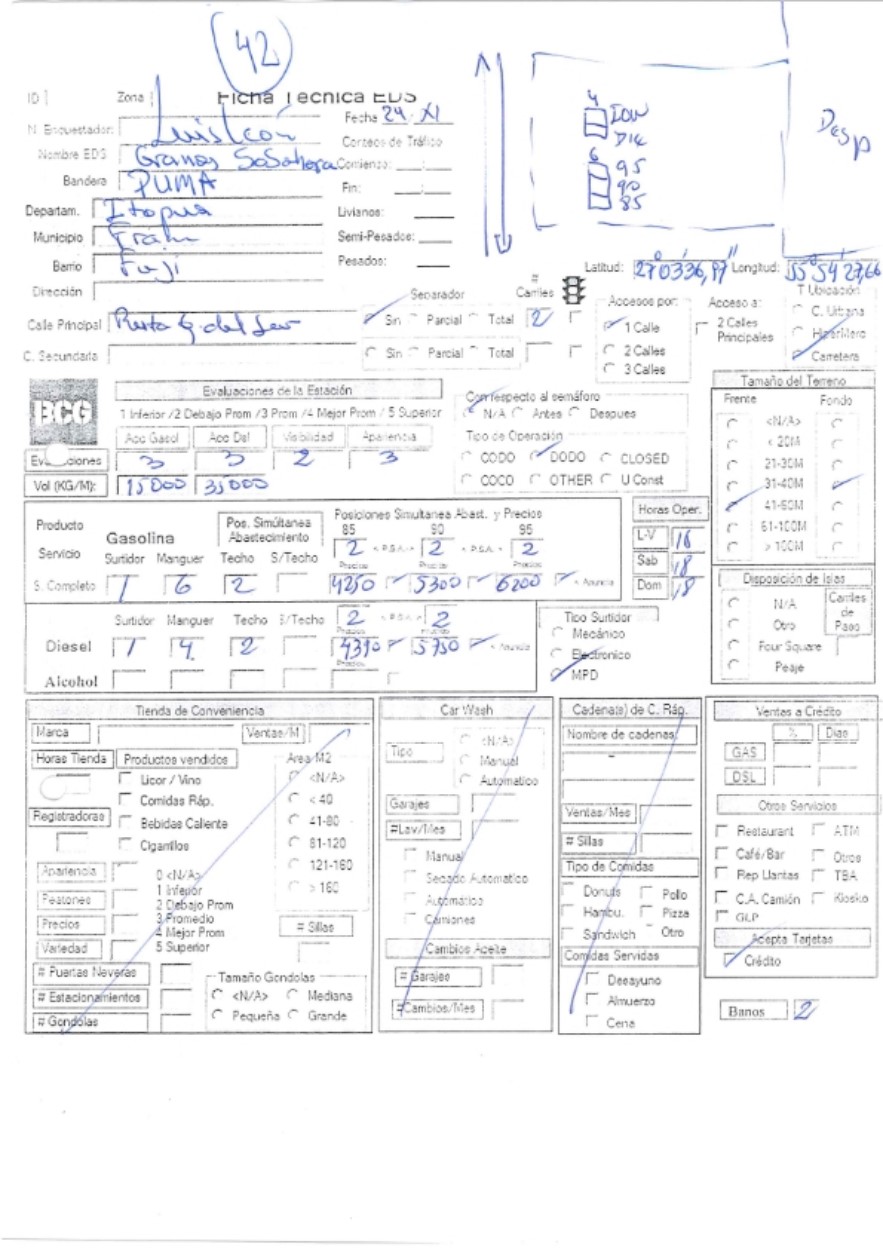 42
ID
Zona
Ficha Tecnica EDS
Fecha 24 XI
N. Encuestador: Luis León
Conteos de Tráfico
Nombre EDS
Comienzo:
Bandera PUMA
Fin:
Departam. Itapua
Livianos:
Municipio
Semi-Pesados:
Barrio Fuji
Pesados:
Dirección
4 ION
DIE
6 95
90
85
Desp
Latitud: 27°03'36,97" Longitud: 55 54 27,66
Calle Principal
Separador
Sin Parcial Total
# Carriles
2
C. Secundaria
Sin Parcial Total
Accesos por:
1 Calle
2 Calles
3 Calles
Acceso a:
2 Calles Principales
T Ubicación
C. Urbana
Carretera
BCG
Evaluaciones de la Estación
1 Inferior /2 Debajo Prom /3 Prom /4 Mejor Prom / 5 Superior
Acc Gasol Acc Dsl Visibilidad Apariencia
3 3 2 3
Vol (KG/M): 15000 35000
Con respecto al semáforo
N/A Antes Despues
Tipo de Operación
CODO DODO CLOSED
COCO OTHER U Const
Tamaño del Terreno
Frente Fondo
<N/A>
< 20M
21-30M
31-40M
41-60M
61-100M
> 100M
Producto
Servicio
Gasolina
Pos. Simultánea Abastecimiento
Posiciones Simultanea Abast. y Precios
85 90 95
Surtidor Manguer Techo S/Techo
2 < P.S.A. > 2 < P.S.A. > 2
Precios Precios Precios
S. Completo 1 6 2 4250 5300 6200 < Anuncia
Horas Oper.
L-V 18
Sab 18
Dom 18
Surtidor Manguer Techo S/Techo 2 < P.S.A. > 2
Diesel 1 4 2 4390 5750 < Anuncia
Precios
Alcohol
Tipo Surtidor
Mecánico
Electronico
MPD
Disposición de Islas
N/A
Otro
Four Square
Peaje
Carriles de Paso
Tienda de Conveniencia
Marca Ventas/M
Horas Tienda Productos vendidos
Licor / Vino
Comidas Ráp.
Bebidas Caliente
Cigarrillos
Registradoras
Area M2
<N/A>
< 40
41-80
81-120
121-160
> 160
Apariencia
Peatones
Precios
Variedad
0 <N/A>
1 Inferior
2 Debajo Prom
3 Promedio
4 Mejor Prom
5 Superior
# Sillas
# Puertas Neveras
# Estacionamientos
# Gondolas
Tamaño Gondolas
<N/A> Mediana
Pequeña Grande
Car Wash
Tipo
<N/A>
Manual
Automatico
Garajes
#Lav/Mes
Manual
Secado Automatico
Automático
Camiones
Cambios Aceite
# Garajes
#Cambios/Mes
Cadena(s) de C. Ráp.
Nombre de cadenas:
Ventas/Mes
# Sillas
Tipo de Comidas
Donuts Pollo
Hambu. Pizza
Sandwich Otro
Comidas Servidas
Desayuno
Almuerzo
Cena
Ventas a Crédito
% Dias
GAS
DSL
Otros Servicios
Restaurant ATM
Café/Bar Otros
Rep Llantas TBA
C.A. Camión Kiosko
GLP
Acepta Tarjetas
Crédito
Banos 2